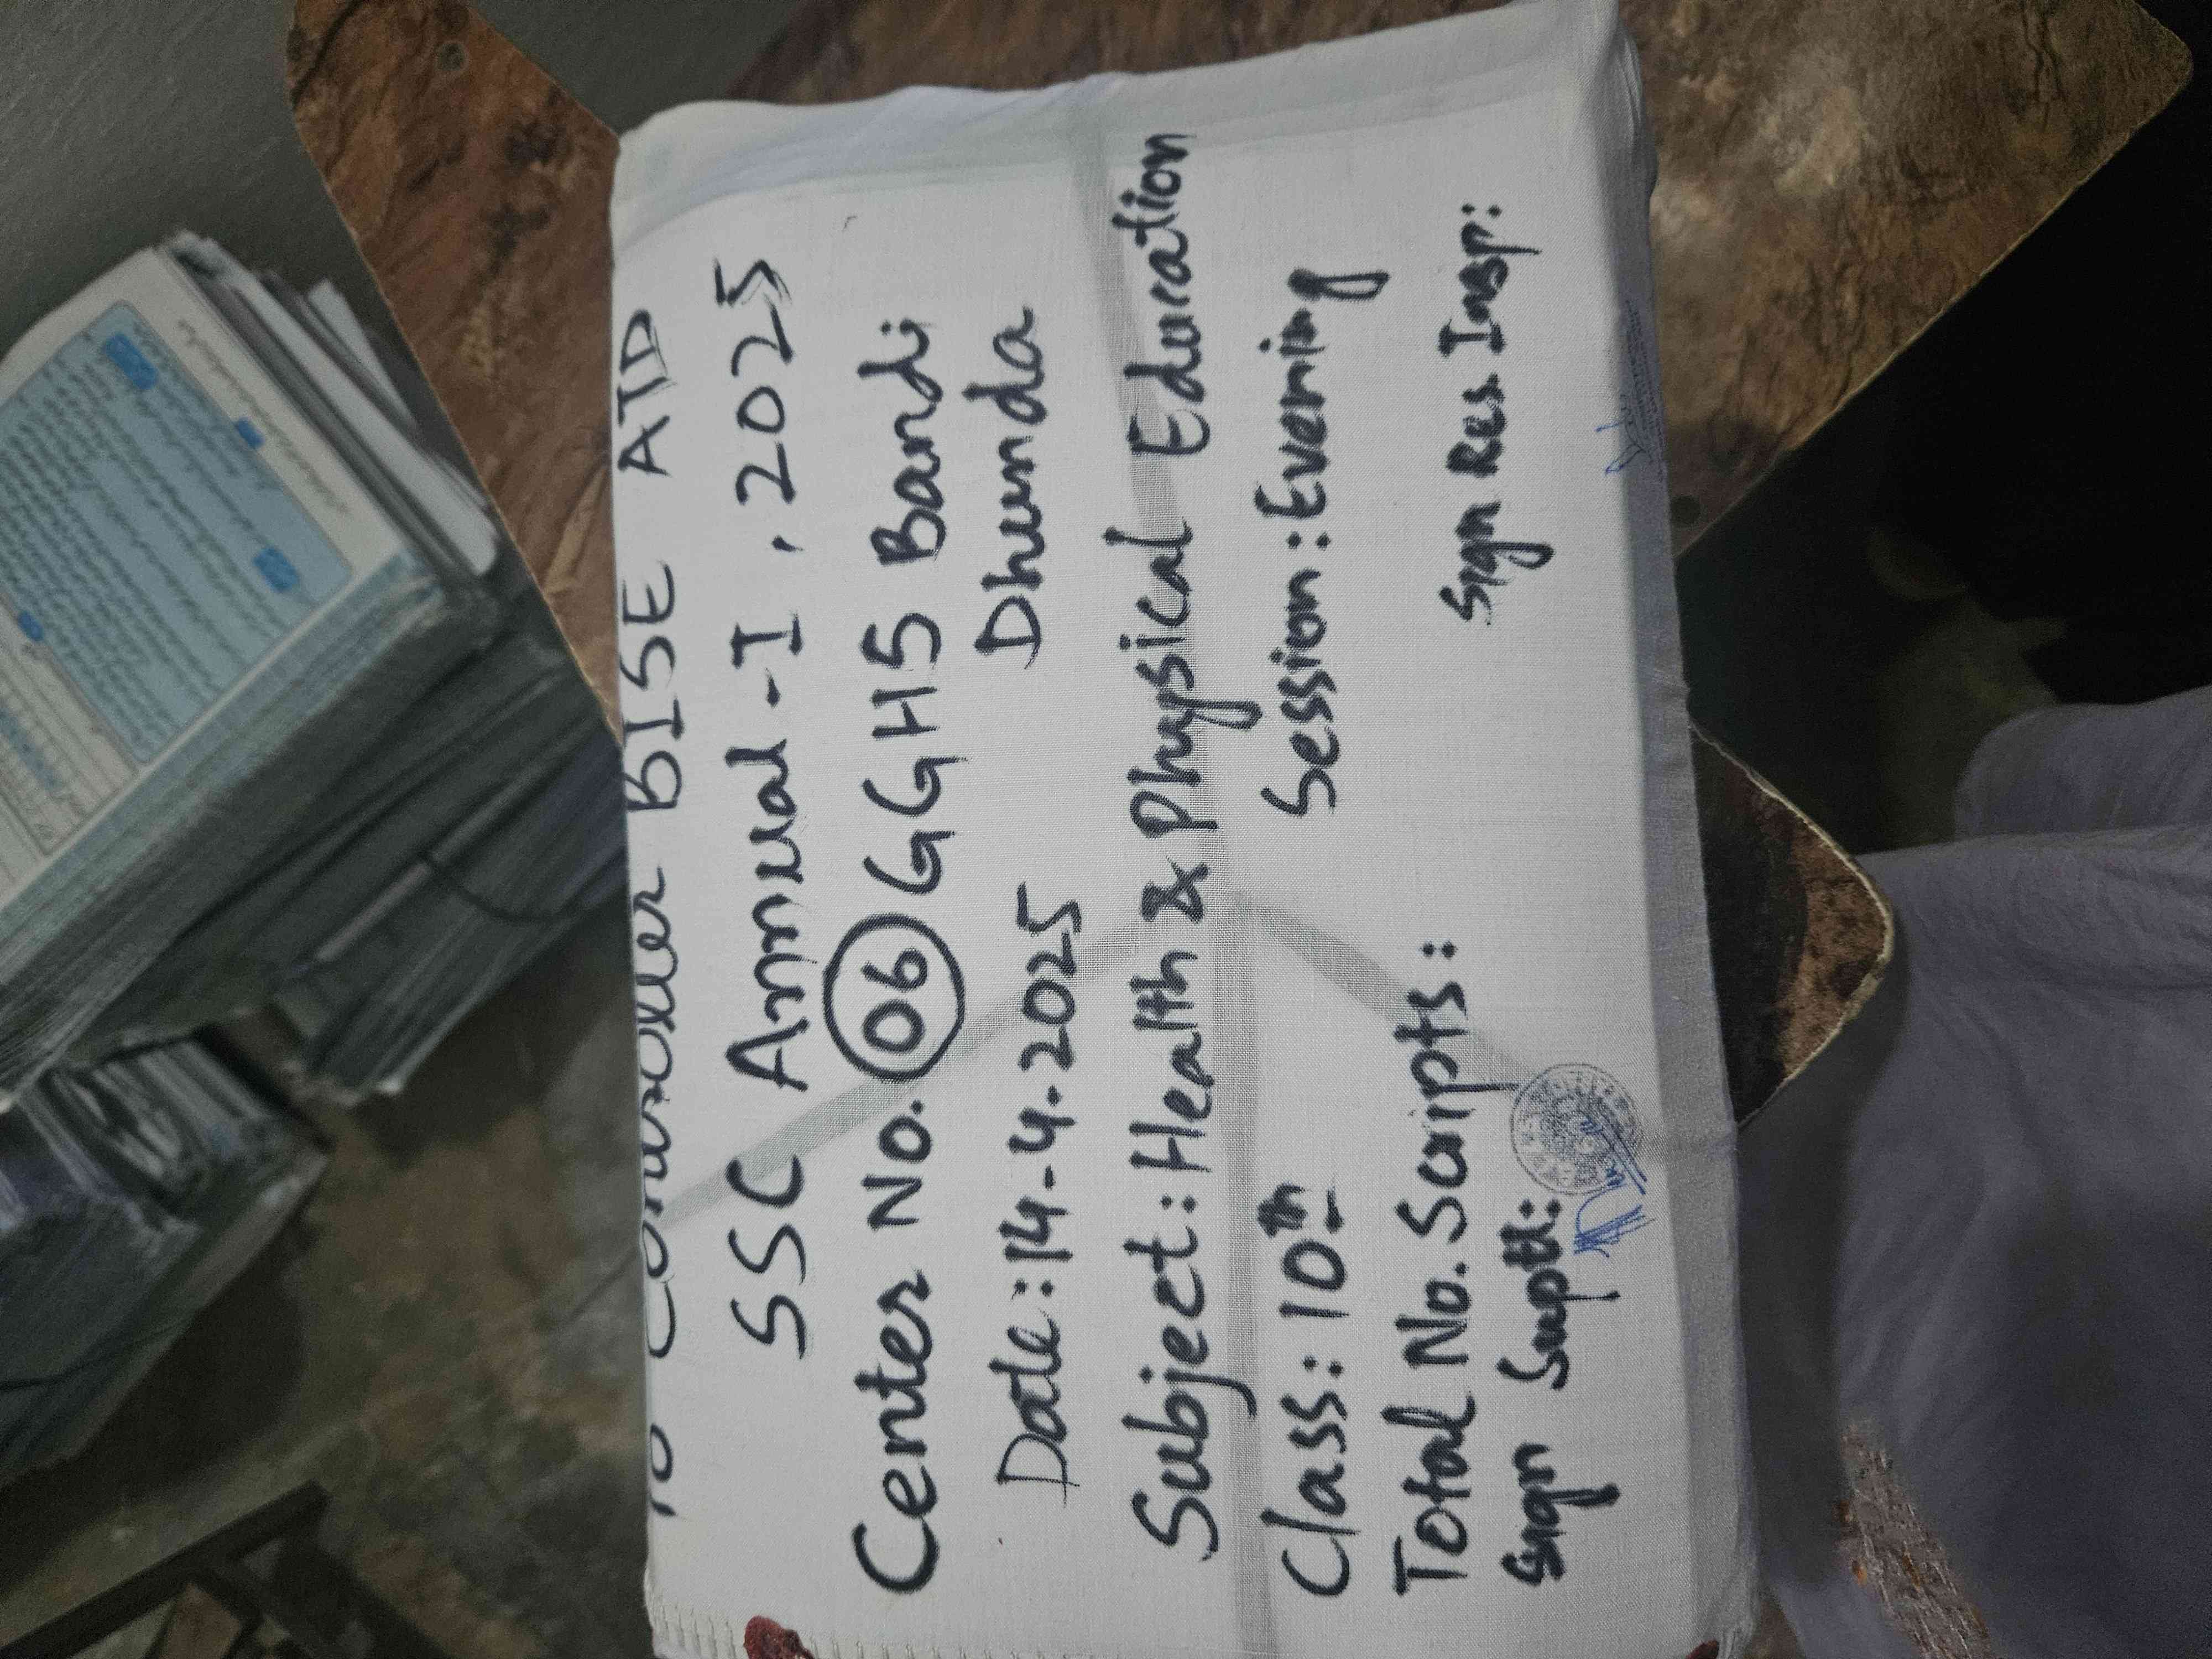 To Controller BISE ATD
SSC Annual-I, 2025
Center No. 06 GGHS Bandi
Dhunda
Date: 14-4-2025
Subject: Health & Physical Education
Class: 10th Session: Evening
Total No. Scripts:
Sign Supth: Sign Res. Insp: